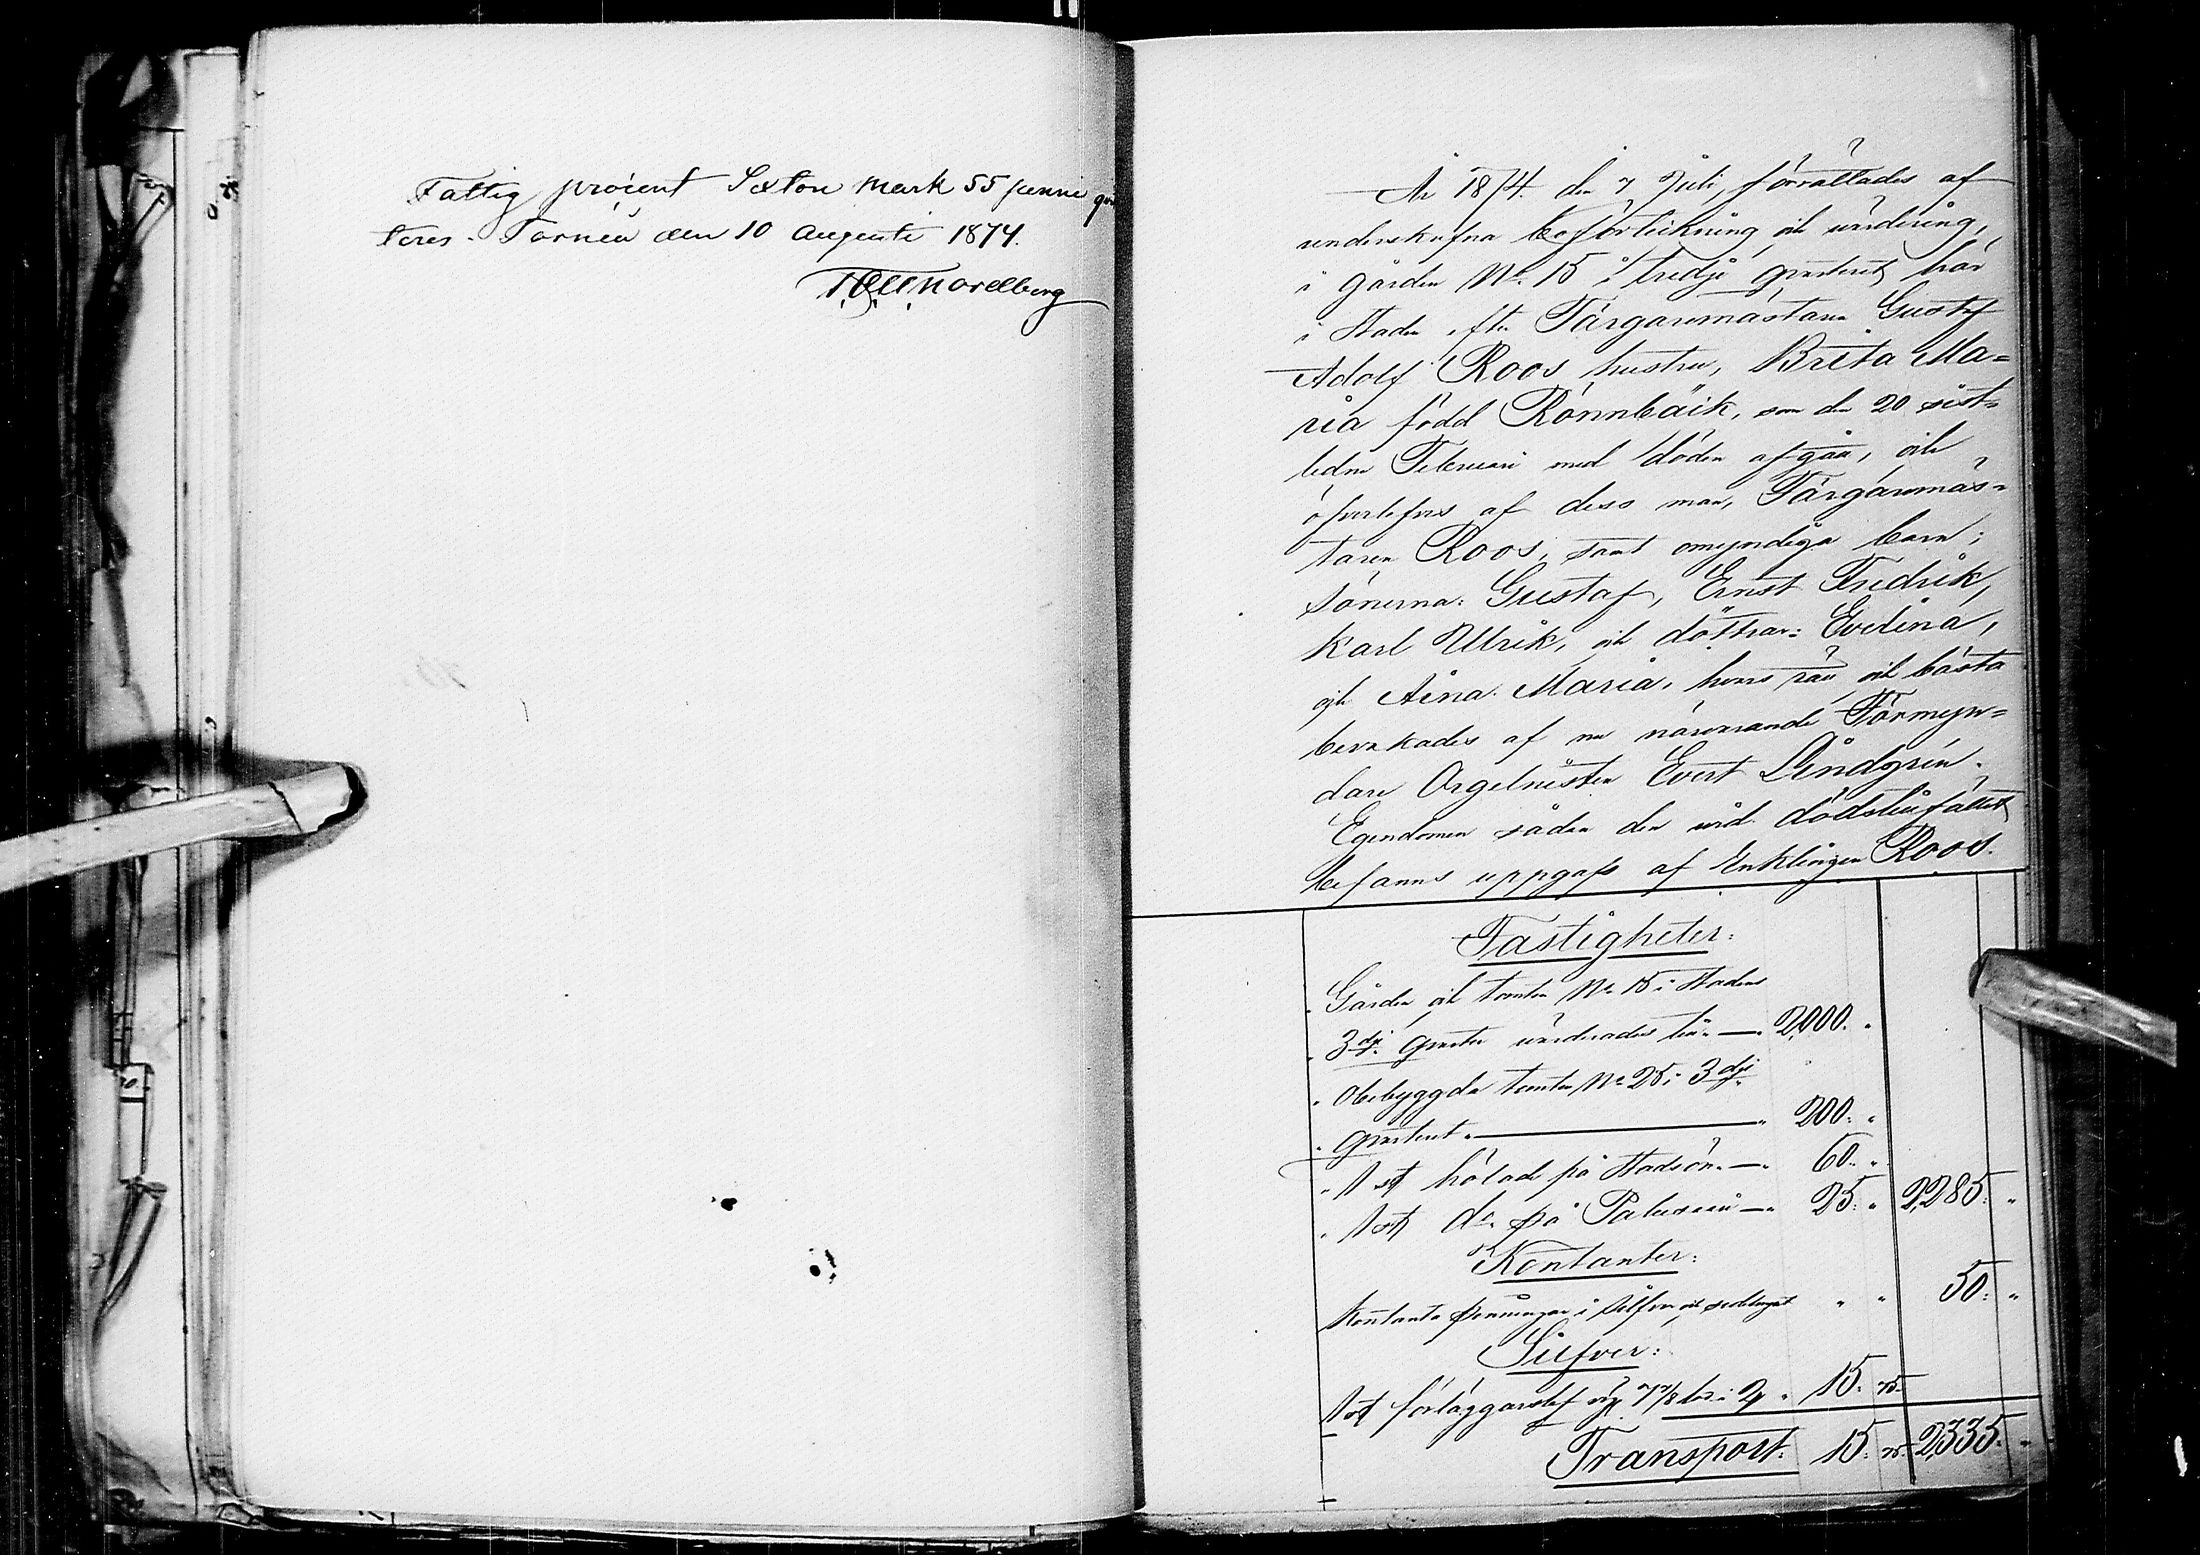 Fattig procent Sexton mark 55 penni qvit
teres. Torneå den 10 Augusti 1874.
Nordberg
År 1874 den 7 Juli, förrättades af
underskrifna bouppteckning och värdering,
i gården No. 15 i tredje qvarteret här
i Staden efter Färgaremästaren Gustaf
Adolf Roos hustru, Brita Ma=
ria född Rönnbäck, som den 20 sist=
ledne Februari med döden afgått, och
öfverlefves af dess man, Färgaremäs=
taren Roos, samt omyndiga barn;
Sönerna: Gustaf, Ernst Fredrik,
Karl Ulrik, och döttrar: Evelina,
och Aina Maria, hvars rätt och bästa
bevakades af nu närvarande Förmyn=
dare Orgelnisten Evert Lindgrén.
Egendomen sådan den vid dödstimfället
befanns uppgafs af Enklingen Roos.
Fastigheter:
Gården och tomten No 15 i Stadens
3dje qvarter värderades till — 2,000. "
Obebyggda tomten No 25 i 3dje
qvarteret — 200: "
1 st hölada på Stadsön — 60. "
1 st do på — 25: " 2,285: "
Kontanter:
Kontanta penningar i silfver och sedlar " " 50: "
Silfver:
1 st förläggareslef 7 7/8 lod à 2 " 15: 75.
Transport. 15: 75. 2,335: "